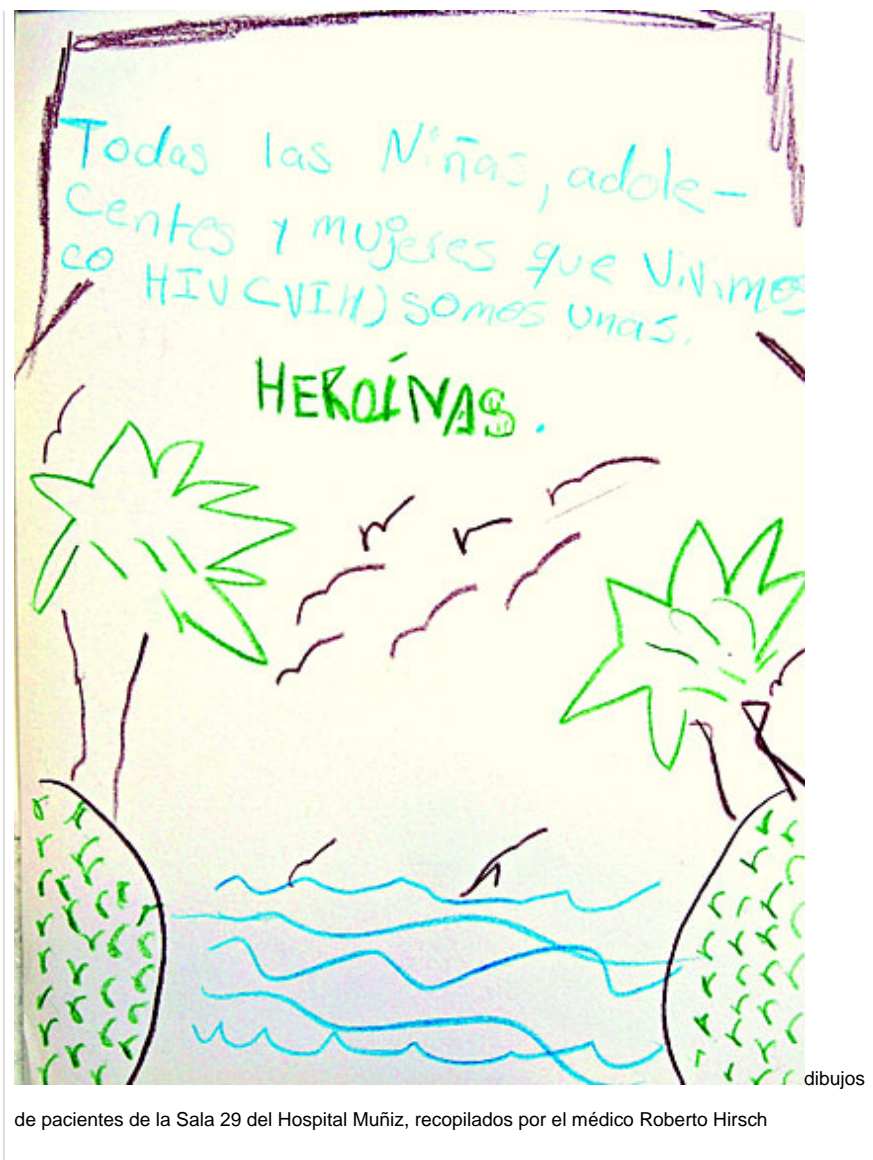 Todas las Niñas, adole-
centes y mujeres que Vivimos
co HIV (VIH) somos unas.
HEROÍNAS.
dibujos
de pacientes de la Sala 29 del Hospital Muñiz, recopilados por el médico Roberto Hirsch